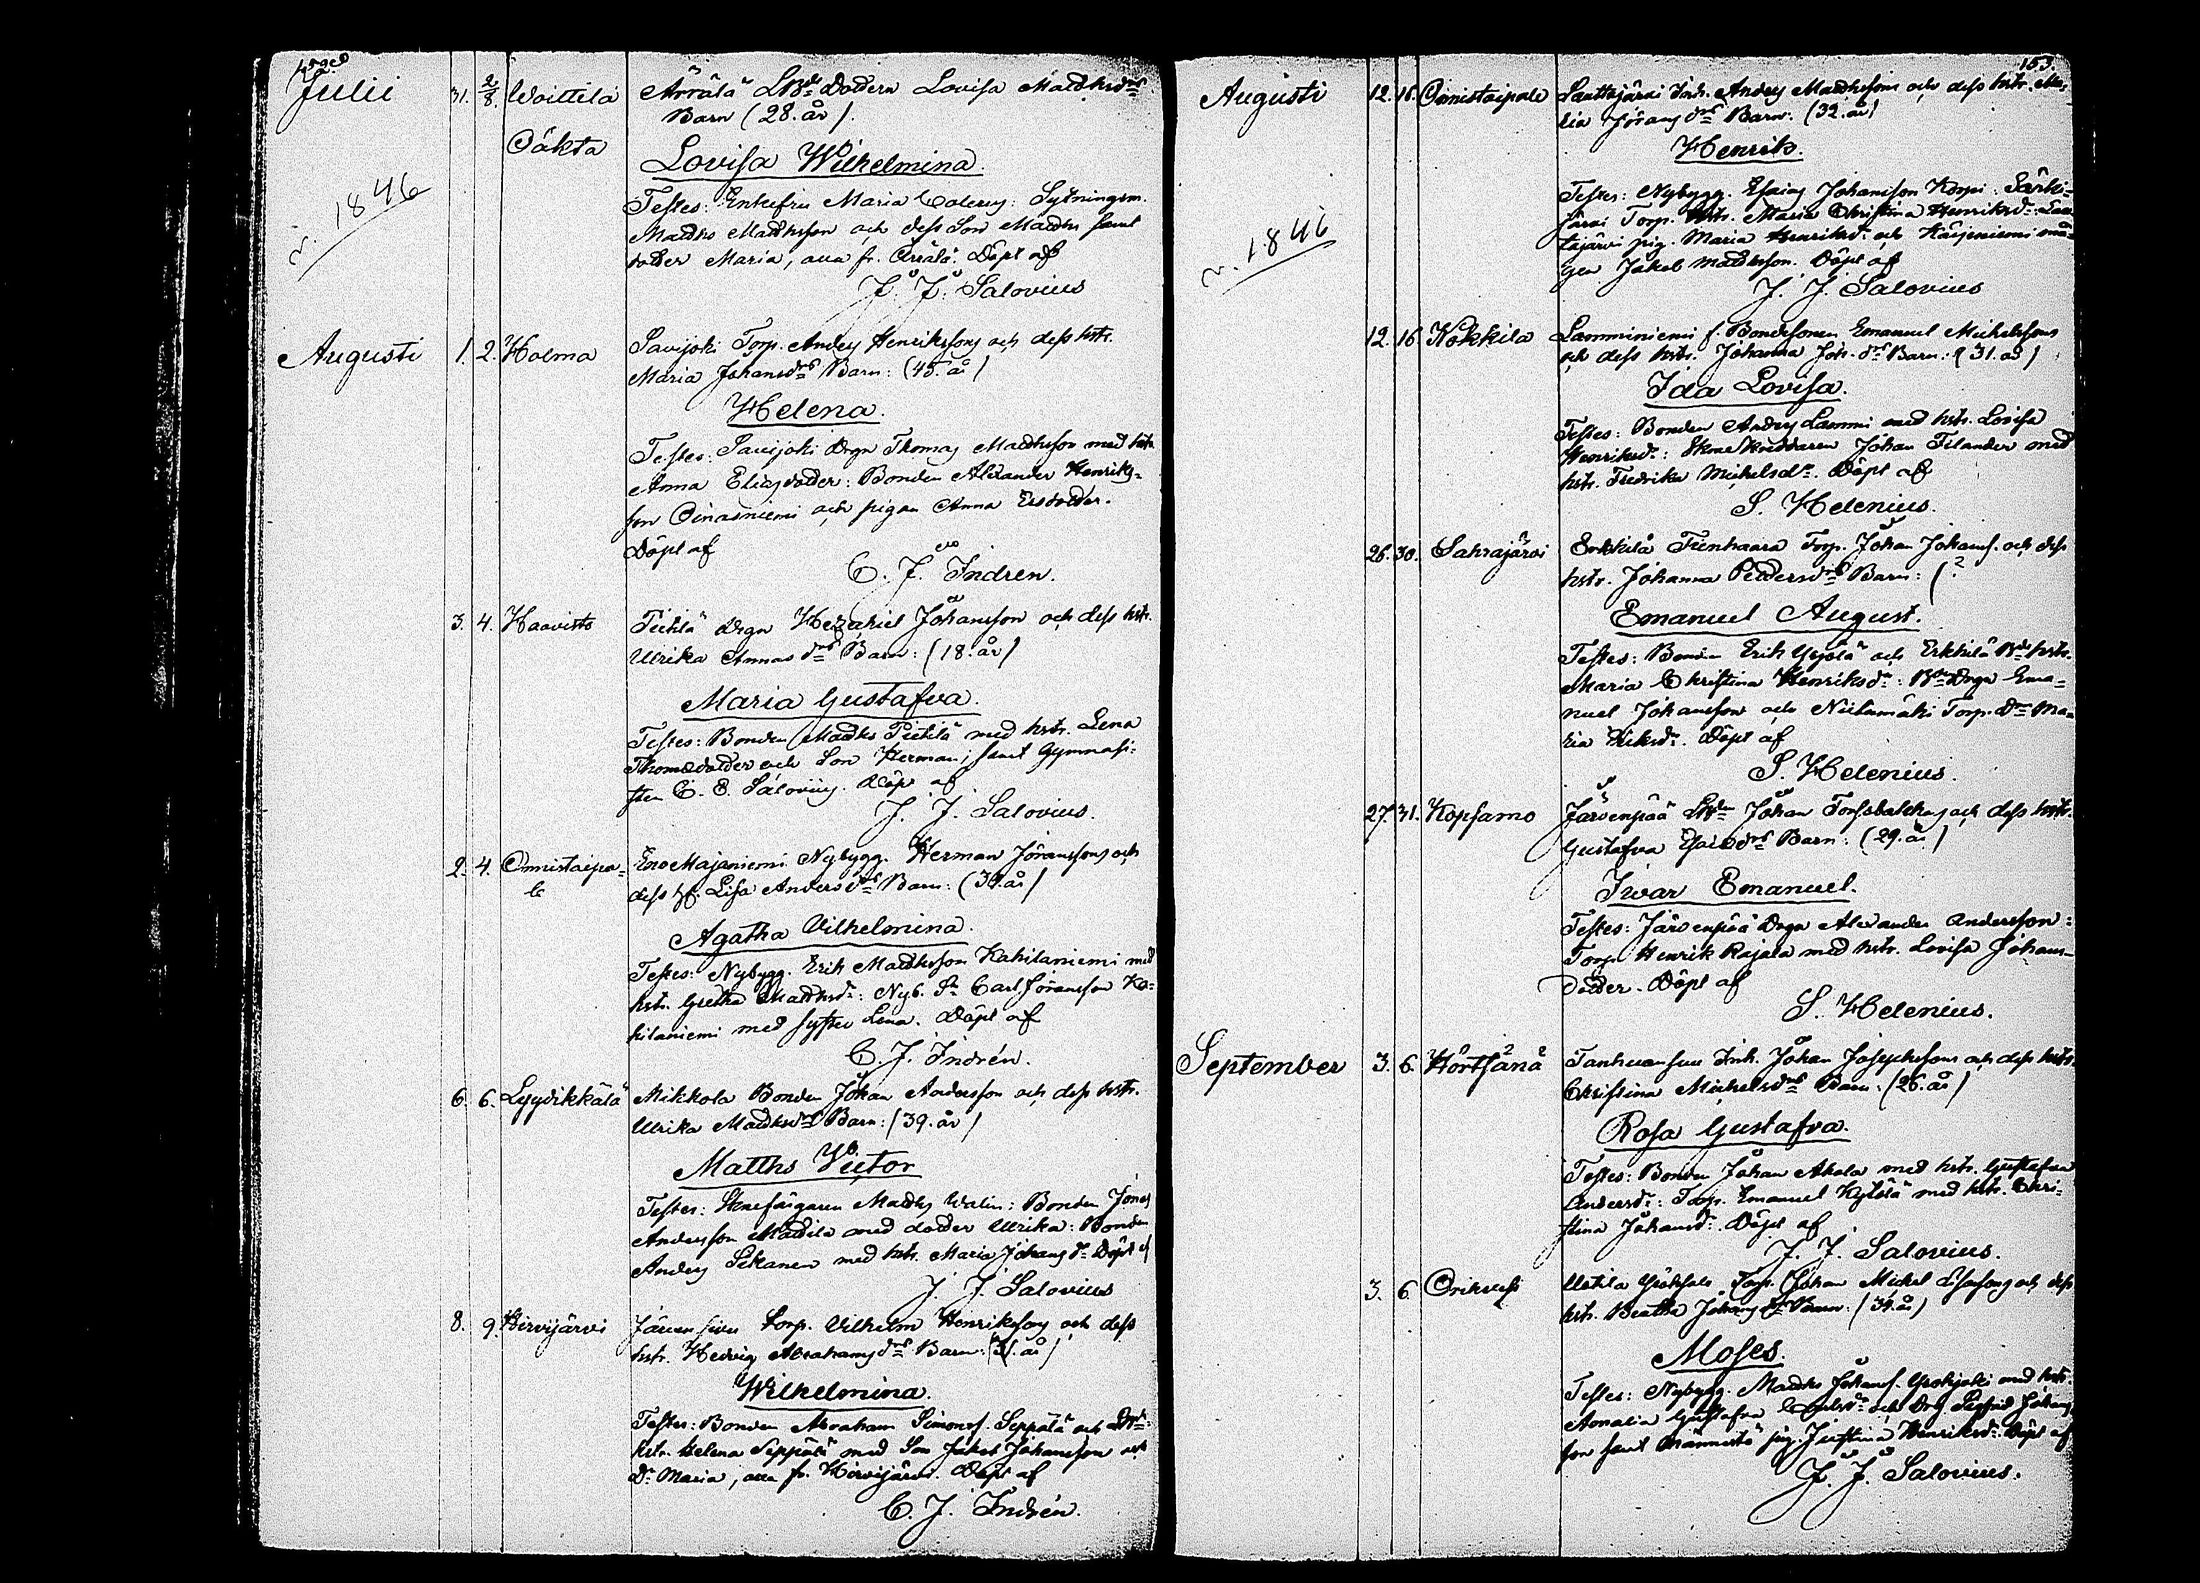 Julii 31. 2/8. Woittila Ärrälä Dottern Lovisa Matthsdrs
Barn (28. år)
Oäkta
Lovisa Wilhelmina.
1846
Testes: Enkefru Maria : Sytningsm.
Matths Matthsson och dess Son Matths samt
dotter Maria, alla fr. Ärrälä. Döpt af
J. J. Salovius
Augusti 1. 2. Holma Savijoki Torp. Anders Henrikssons och dess hstr.
Maria Johansdrs Barn: (45. år)
Helena.
Testes: Savijoki Drgn Thomas Matthsson med hstr.
Anna Eliasdotter: Bonden Alexander Henriks-
son och pigan Anna Ersdotter.
Döpt af
C. J. Indren.
3. 4. Haavisto Pietilä Drgn Hezekiel Johansson och dess hstr.
Ulrika Annas drs Barn: (18. år)
Maria Gustafva.
Testes: Bonden Matths Pietilä med hstr. Lena
Thomasdotter och Son Herman, samt Gymnasi-
sten C. E. Salovius. Döpt af
J. J. Salovius.
2. 4. Onnistaipa- Nybygg. Herman Göranssons och
le dess h. Lisa Andersdrs Barn: (34. år)
Agatha Vilhelmina.
Testes: Nybygg. Erik Matthsson Kahilaniemi med
hstr. Gretha Matthsdr: Nyb. Sn Carl Göransson Ka-
hilaniemi med syster Lena. Döpt af
C. J. Indrén.
6. 6. Lyydikkälä Mikkola Bonden Johan Andersson och dess hstr.
Ulrika Matthsdrs Barn: (39. år)
Matths Victor
Testes: Skenefärgaren Matths Walin: Bonden Jonas
Andersson Mattila med dotter Ulrika: Bonden
Anders Sikanen med hstr. Maria Johans dr. Döpt af
J. J. Salovius
8. 9. Hirvijärvi Järven sivu Torp. Vilhelm Henrikssons och dess
hstr. Hedvig Abrahamsdrs Barn: (31. år)
Wilhelmina.
Testes: Bonden Abraham Simonss. Seppälä och
hstr. Helena Seppälä med Son Jakob Johansson och
Dr Maria, alla fr. Hirvijärvi. Döpt af
C. J. Indrén.
153.
Augusti 12. 16. Onnistaipale Saattajärvi Inh. Anders Matthssons och dess hstr. Ma-
ria Görans drs Barn: (32. år)
Henrik.
1846
Testes: Nybygg. Esaias Johansson Korpi: Särki-
järvi Torp. hstr. Maria Christina Henriksdr: Saa-
tajärvi pig. Maria Henriksdr och Karjeniemi må-
gen Jakob Matthsson. Döpt af
J. J. Salovius
12. 16 Kokkila Lamminiemi f. Bondesonen Emanuel Michelssons
och dess hstr. Johanna Joh. drs Barn: (31. år)
Ida Lovisa.
Testes: Bonden Anders Lammi med hstr. Lovisa
Henriksdr: Skräddaren Johan Filander med
hstr. Fredrika Michelsdr. Döpt af
S. Helenius.
26. 30. Sahrajärvi Erkkilä Torp. Johan Johanss. och dess
hstr. Johanna Pettersdrs Barn: (?
Emanuel August.
Testes: Bonden Erik Yrjölä och Erkkilä Bde hstr.
Maria Christina Henriksdr: Drgn Ema-
nuel Johansson och Niitumäki Torp. Dr Ma-
ria Eriksdr. Döpt af
S. Helenius.
27. 31. Kopsamo Järvenpää Johan Torsbackas och dess hstr.
Gustafva Esaiædrs Barn: (29. år)
Iwar Emanuel.
Testes: Järvenpää Drgn Alexander Andersson:
Torp. Henrik Rajala med hstr. Lovisa Johans-
dotter. Döpt af
S. Helenius.
September 3. 6. Hörtsänä Inh. Johan Josephssons och dess hstr.
Christina Michelsdrs Barn: (26. år)
Rosa Gustafva.
Testes: Bonden Johan Akola med hstr. Gustafva
Andersdr: Torp. Emanuel Kytölä med hstr. Chri-
stina Johansdr. Döpt af
J. J. Salovius.
3. 6. Orihvesi Uotila Torp. Johan Mickel och dess
hstr. Beatha Johans dr Barn: (34. år)
Moses.
Testes: Nybygg. Matths Johanss. med hstr.
Amalia Gustafva och Drg Sigfrid Johans-
son samt Männistö pig. Justina Henriksdr. Döpt af
J. J. Salovius.